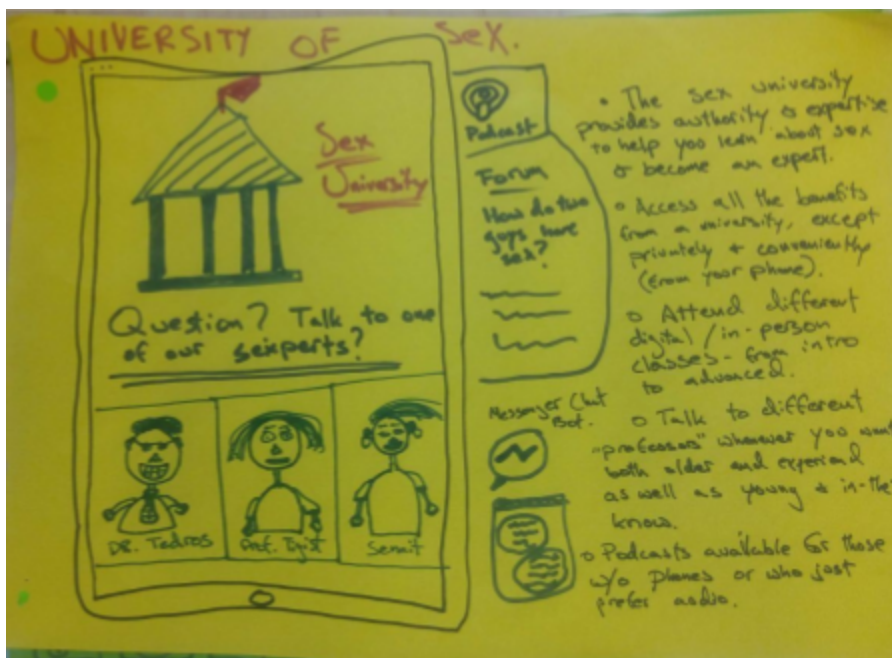 UNIVERSITY OF SEX.
Sex
University
Question? Talk to one
of our sexperts?
DR. Tedros
Prof. Tgist
Semit
Podcast
Forum
How do two
guys have
sex?
Messenger Chat
Bot.
• The sex university
provides authority & expertise
to help you learn about sex
or become an expert.
• Access all the benefits
from a university, except
privately & conveniently
(from your phone).
o Attend different
digital/in-person
classes - from intro
to advanced.
o Talk to different
"professors" whenever you want
both older and experiend
as well as young & in-the
know.
o Podcasts available for those
w/o phones or who just
prefer audio.